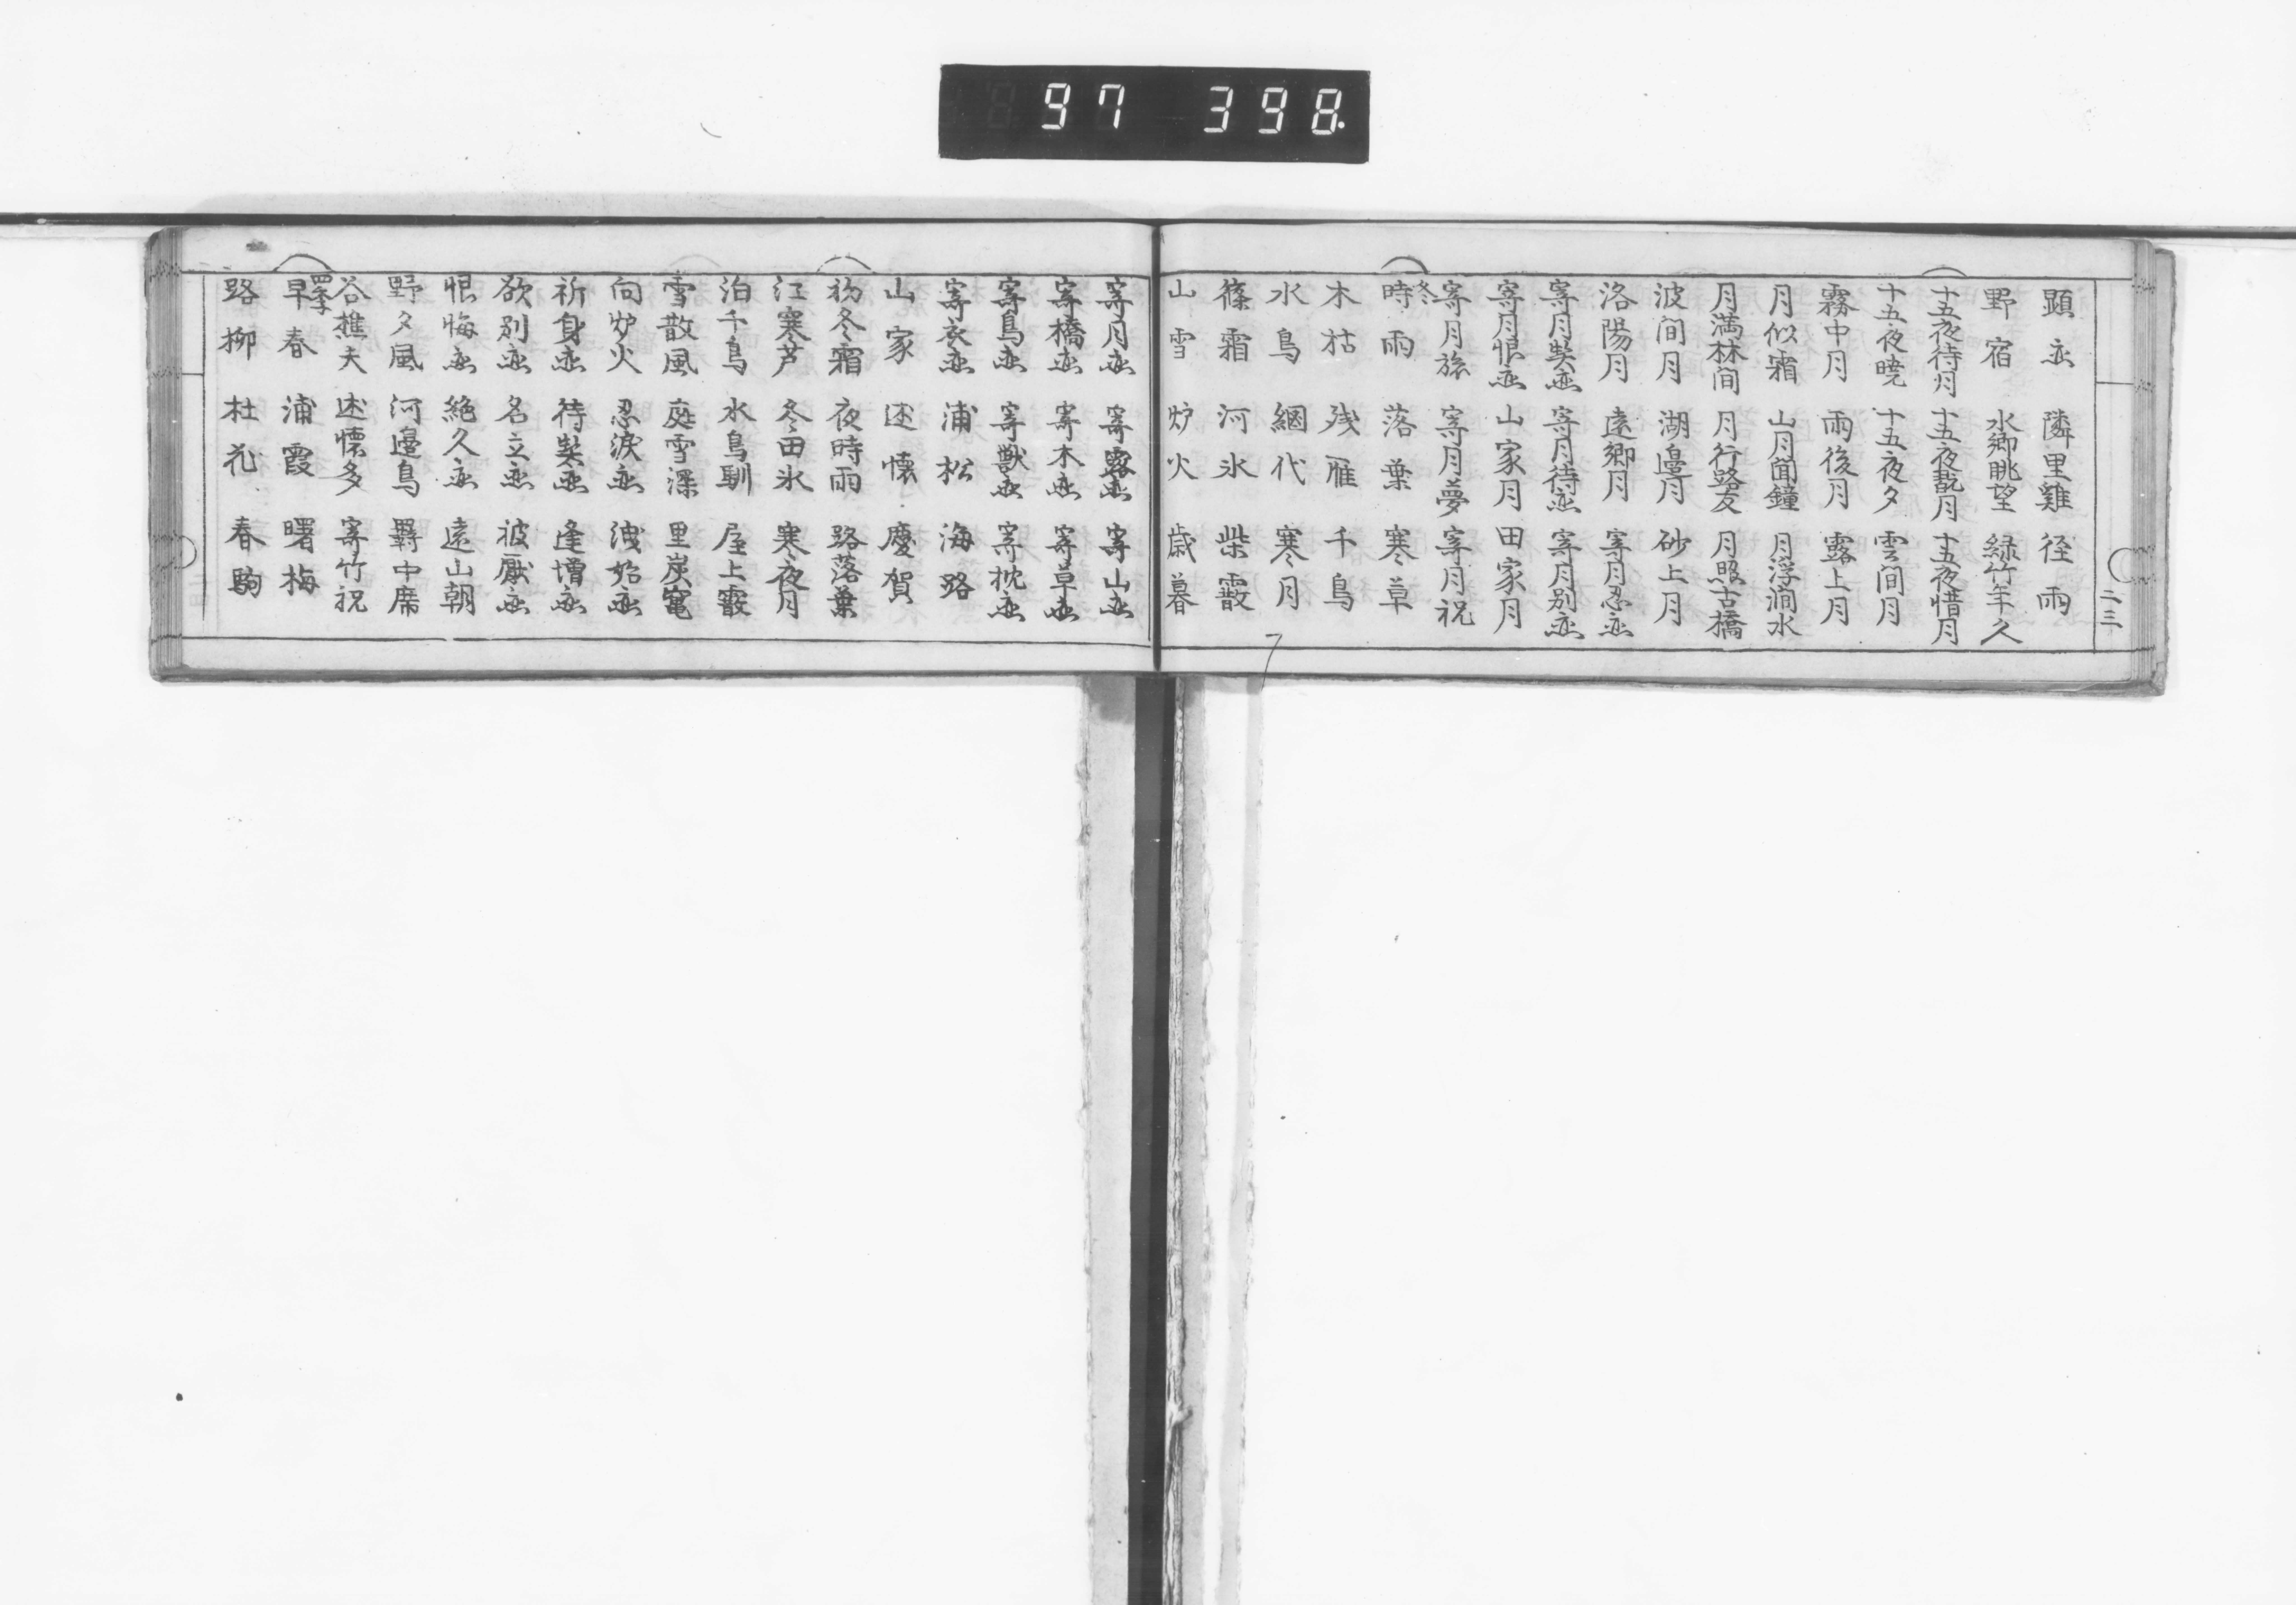 97 398.
二三
顕恋 隣里雞 径雨
野宿 水郷眺望 緑竹年久
十五夜待月 十五夜翫月 十五夜惜月
十五夜暁 十五夜夕 雲间月
霧中月 雨後月 露上月
月似霜 山月聞鐘 月浮澗水
月満林间 月行路友 月照古橋
波间月 湖邉月 砂上月
洛陽月 遠郷月 寄月忍恋
寄月契恋 寄月待恋 寄月別恋
寄月恨恋 山家月 田家月
寄月旅 寄月夢 寄月祝
冬
時雨 落葉 寒草
木枯 残雁 千鳥
水鳥 網代 寒月
篠霜 河氷 柴霰
山雪 炉火 歳暮
寄月恋 寄露恋 寄山恋
寄橋恋 寄木恋 寄草恋
寄鳥恋 寄獣恋 寄枕恋
寄衣恋 浦松 海路
山家 述懐 慶賀
初冬霜 夜時雨 路落葉
江寒芦 冬田氷 寒夜月
泊千鳥 水鳥馴 屋上霰
雪散風 庭雪深 里炭竃
向炉火 忍涙恋 洩始恋
祈身恋 待契恋 逢増恋
欲別恋 名立恋 被厭恋
恨悔恋 絶久恋 遠山朝
野夕風 河邉鳥 羇中席
谷樵夫 述懐多 寄竹祝
四季
早春 浦霞 曙梅
路柳 杜花 春駒